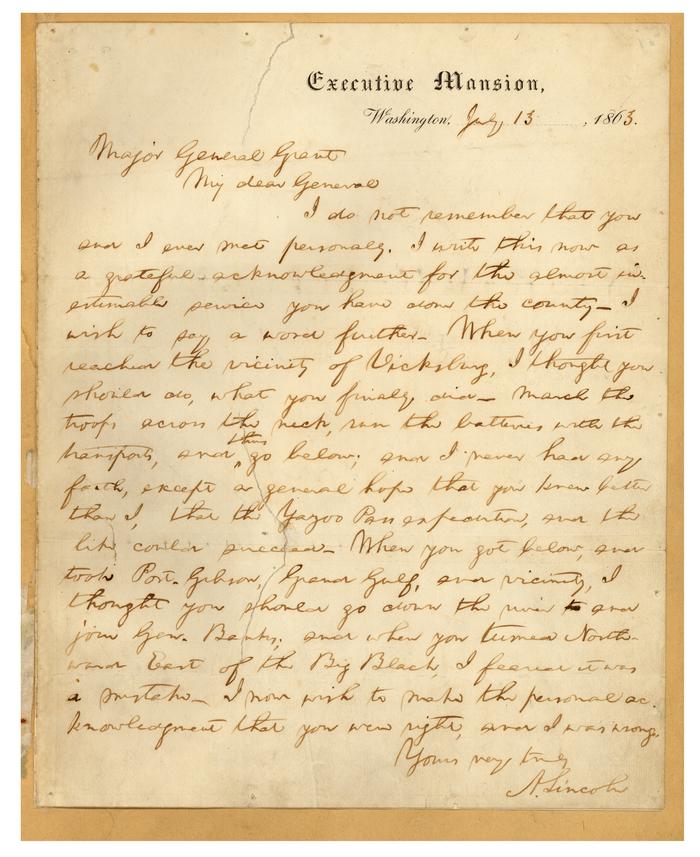 Executive Mansion,
Washington, July 13, 1863.
Major General Grant
My dear General
I do not remember that you
and I ever met personally. I write this now as
a grateful acknowledgment for the almost in-
estimable service you have done the country— I
wish to say a word further— When you first
reached the vicinity of Vicksburg, I thought you
should do, what you finally did— march the
troops across the neck, run the batteries with the
transports, and thus go below; and I never had any
faith, except a general hope that you knew better
than I, that the Yazoo Pass expedition, and the
like could succeed— When you got below, and
took Port-Gibson, Grand Gulf, and vicinity, I
thought you should go down the river to and
join Gen. Banks; and when you turned North-
ward East of the Big Black, I feared it was
a mistake— I now wish to make the personal ac-
knowledgment that you were right, and I was wrong.
Yours very truly
A. Lincoln